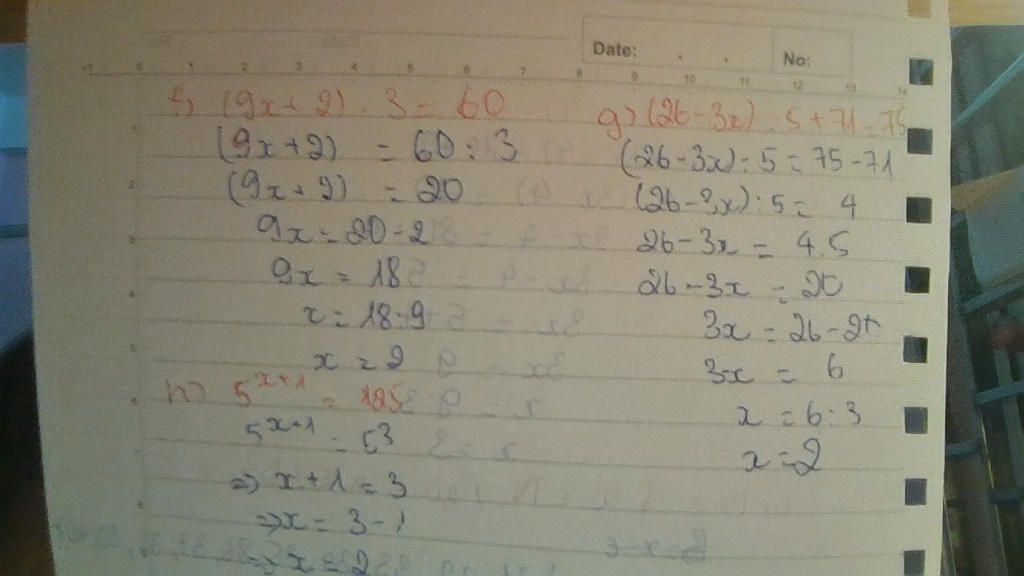 Date:
No:
f) (9x+2) . 3 = 60
(9x+2) = 60 : 3
(9x+2) = 20
9x = 20-2
9x = 18
x = 18:9
x = 2
h) 5^x+1 = 125
5^x+1 = 5^3
=> x+1 = 3
=> x = 3-1
=> x = 2
g) (26-3x) : 5 + 71 = 75
(26-3x) : 5 = 75-71
(26-3x) : 5 = 4
26-3x = 4.5
26-3x = 20
3x = 26-20
3x = 6
x = 6:3
x = 2